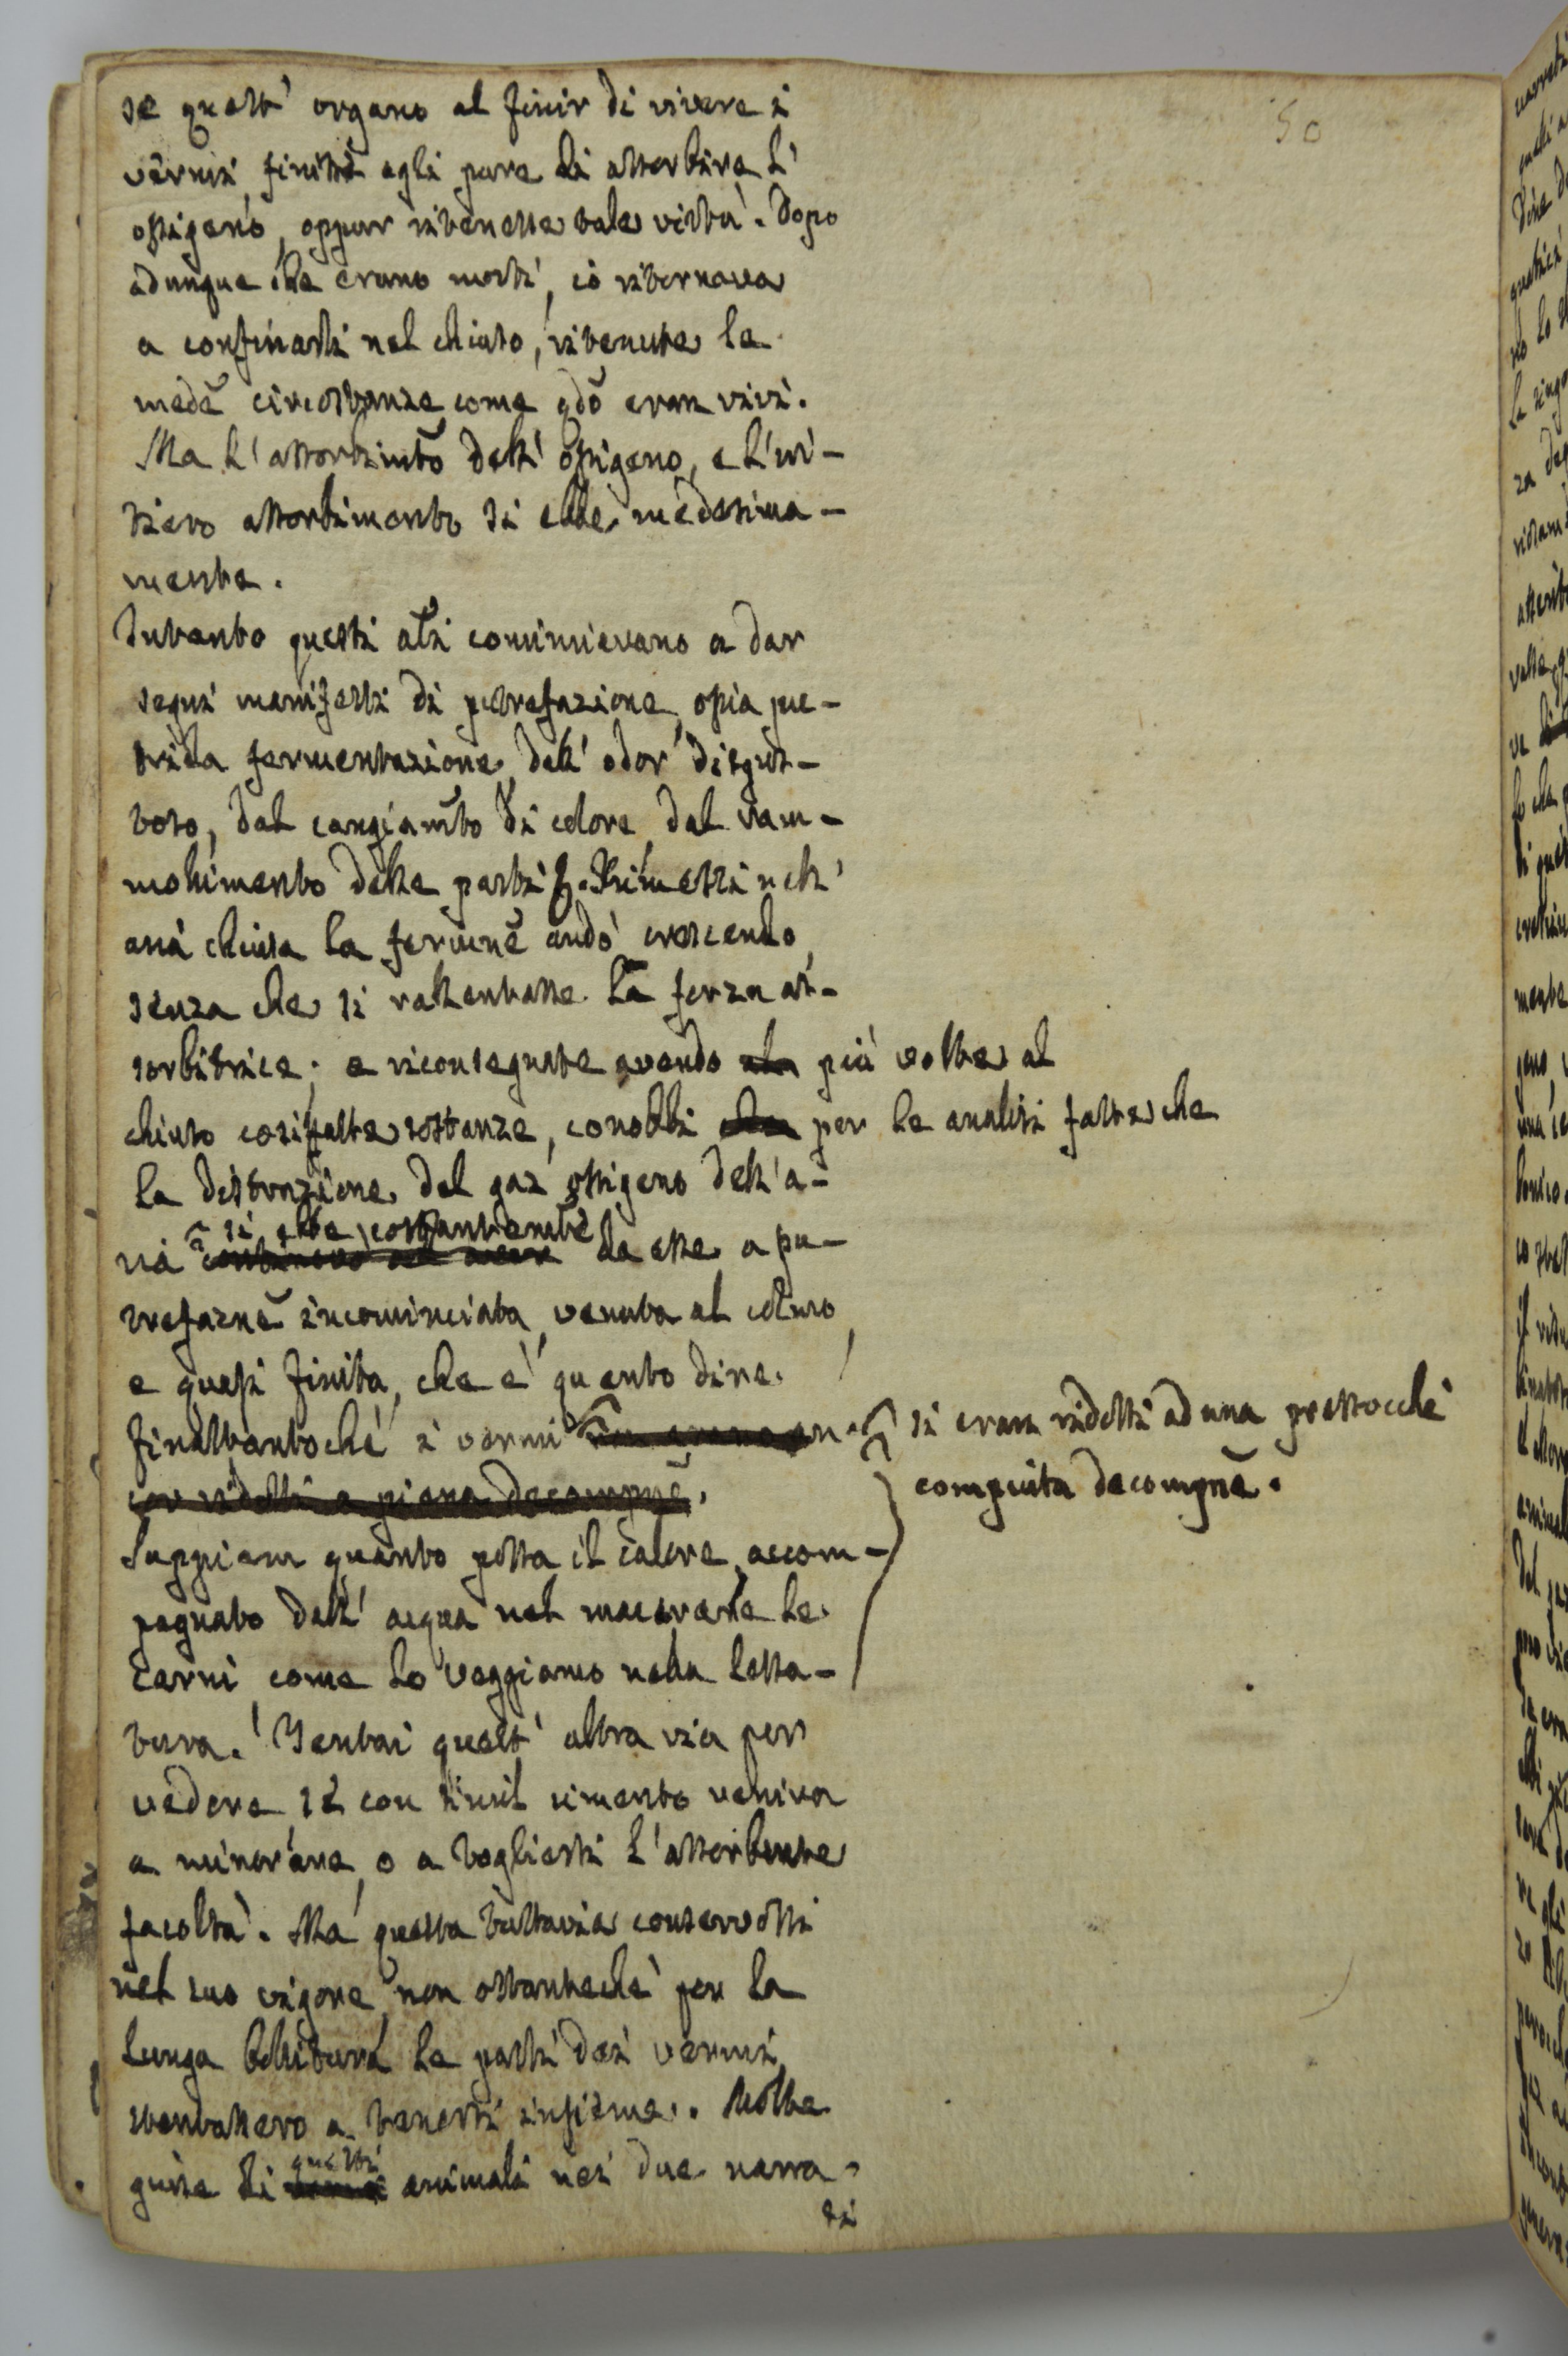 50
se quest' organo al finir di vivere i
vermi finisse egli pure di assorbire l'
ossigeno, oppur ritenesse tale virtù. Dopo
adunque che erano morti, io ritornava
a confinarli nel chiuso, ritenute le
medē circostanze come qdō eran vivi.
Ma l'assorbimtō dell' ossigeno, e l'in-
tiero assorbimento si ebbe medesima-
mente.
Intanto questi alī cominciavano a dar
segni manifesti di putrefazione, ossia pu-
trida fermentazione, dall' odor disgus-
toso, dal cangiamtō di colore, dal ram-
mollimento delle parti &. Rimessi nell'
aria chiusa la fermnē andò crescendo,
senza che si rallentasse la forza as-
sorbitrice; e riconsegnate avendo più volte al
chiuso cosifatte sostanze, conobbi che per le analisi fatte che
la distruzione del gaz ossigeno dell'a-
ria si ebbe costantemtē da esse a pu-
trefaznē incominciata, venuta al colmo,
e quasi finita, che è quanto dire.
finattantoché i vermi si eran ridotti ad una pressocchè
compiuta decompnē.
cor ridotti a piena decompnē.
Sappiam quanto possa il calore accom-
pagnato dall' acqua nel macerare le
carni, come lo veggiamo nella lessa-
tura. Tentai quest' altra via per
vedere se con simil cimento veniva
a minorare, o a togliersi l'assorbente
facoltà. Ma questa tuttavia conservossi
nel suo vigore non ostanteché per la
lunga bollitura le parti dei vermi
stentassero a tenersi insieme. Molte
guise di questi animali nei due narra-
ti